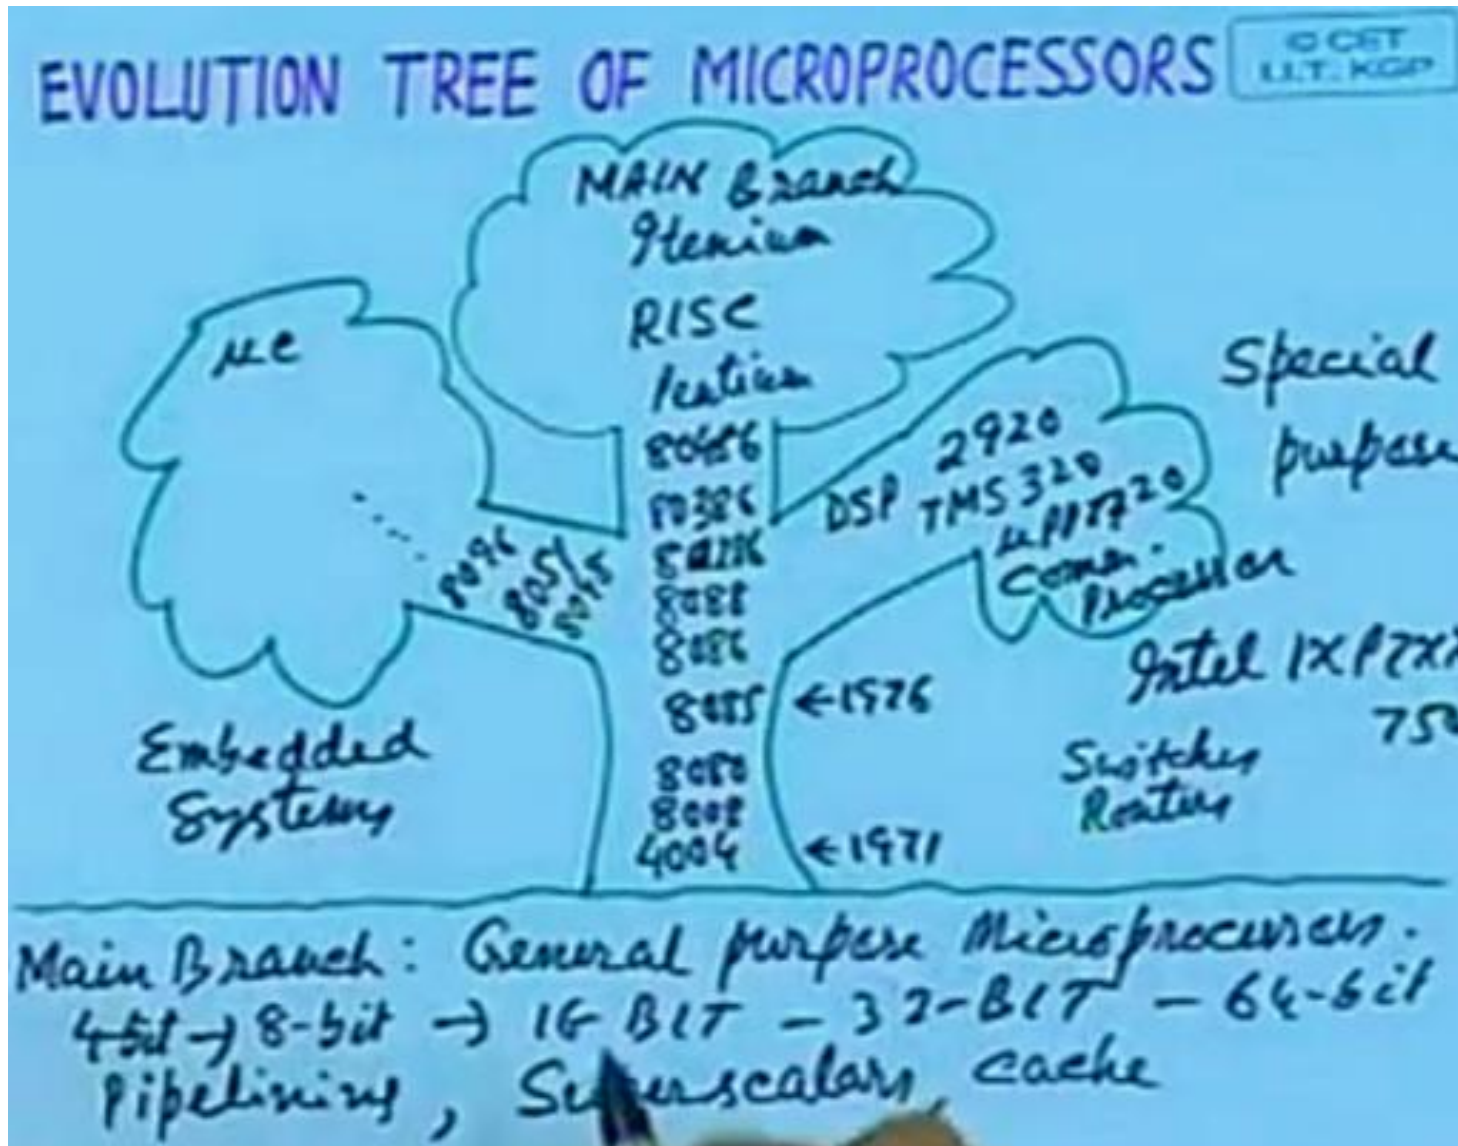 EVOLUTION TREE OF MICROPROCESSORS
© CET
I.I.T. KGP
MAIN Branch
Itenium
RISC
Pentium
80486
80386
80286
8088
8086
8085 ←1976
8080
8008
4004 ←1971
μc
8096
8051
Embedded
Systems
DSP 2920
TMS 320
Comm.
Processor
Special
purpose
Intel IXP
750
Switches
Routers
Main Branch: General purpose Microprocessors.
4bit → 8-bit → 16 BIT - 32-BIT - 64-bit
Pipelining, Superscalar, cache